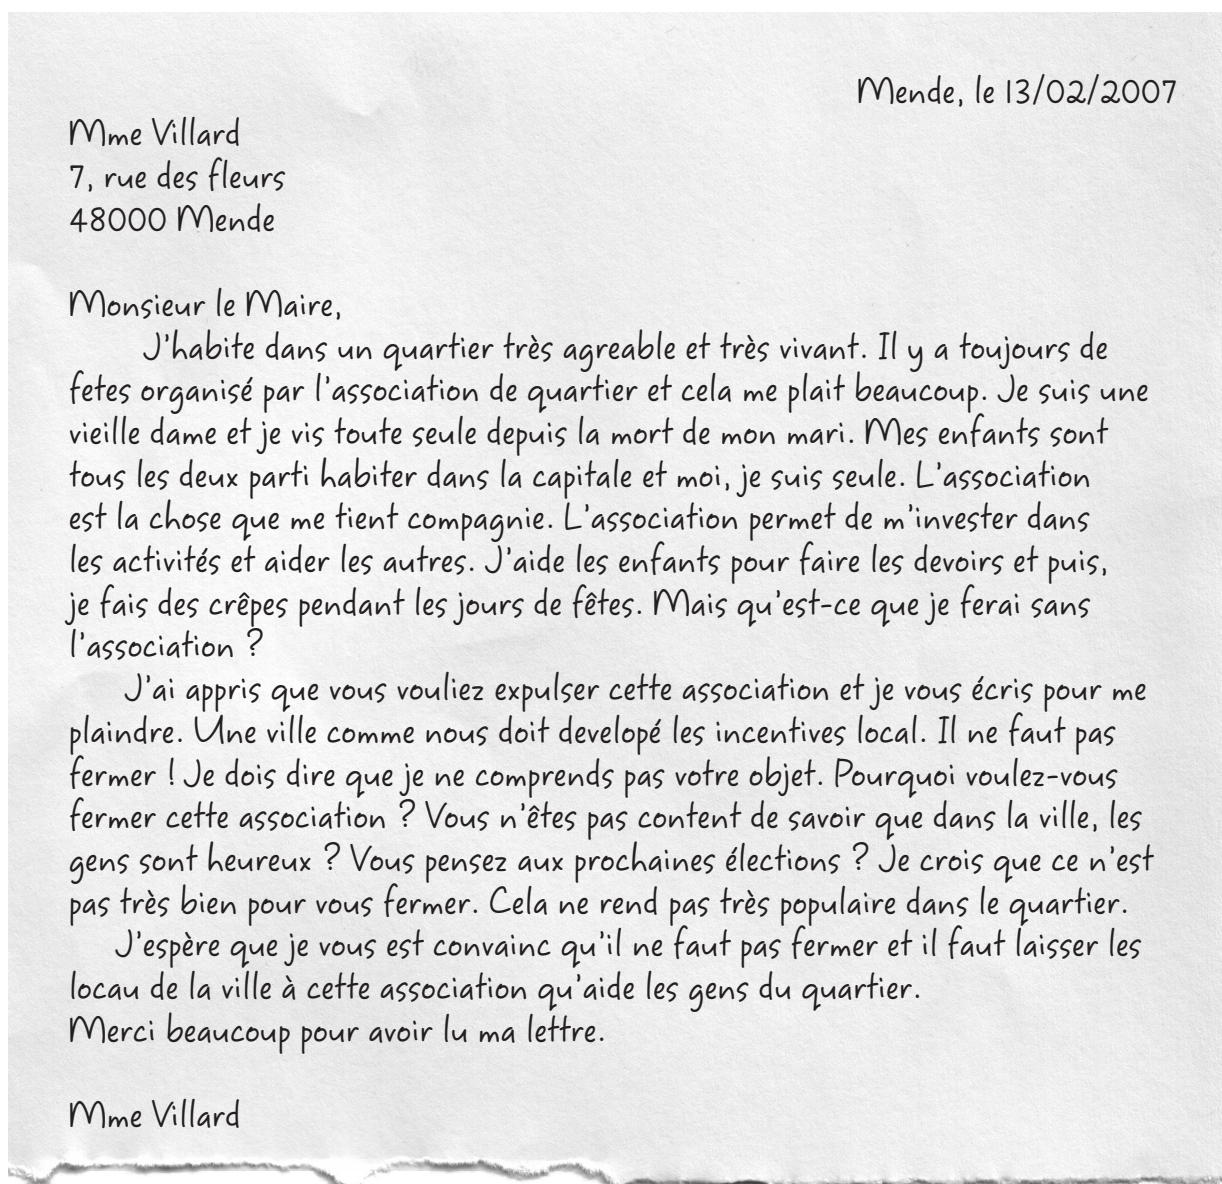 Mende, le 13/02/2007
Mme Villard
7, rue des fleurs
48000 Mende
Monsieur le Maire,
J'habite dans un quartier très agreable et très vivant. Il y a toujours de
fetes organisé par l'association de quartier et cela me plait beaucoup. Je suis une
vieille dame et je vis toute seule depuis la mort de mon mari. Mes enfants sont
tous les deux parti habiter dans la capitale et moi, je suis seule. L'association
est la chose que me tient compagnie. L'association permet de m'invester dans
les activités et aider les autres. J'aide les enfants pour faire les devoirs et puis,
je fais des crêpes pendant les jours de fêtes. Mais qu'est-ce que je ferai sans
l'association ?
J'ai appris que vous vouliez expulser cette association et je vous écris pour me
plaindre. Une ville comme nous doit developé les incentives local. Il ne faut pas
fermer ! Je dois dire que je ne comprends pas votre objet. Pourquoi voulez-vous
fermer cette association ? Vous n'êtes pas content de savoir que dans la ville, les
gens sont heureux ? Vous pensez aux prochaines élections ? Je crois que ce n'est
pas très bien pour vous fermer. Cela ne rend pas très populaire dans le quartier.
J'espère que je vous est convainc qu'il ne faut pas fermer et il faut laisser les
locau de la ville à cette association qu'aide les gens du quartier.
Merci beaucoup pour avoir lu ma lettre.
Mme Villard